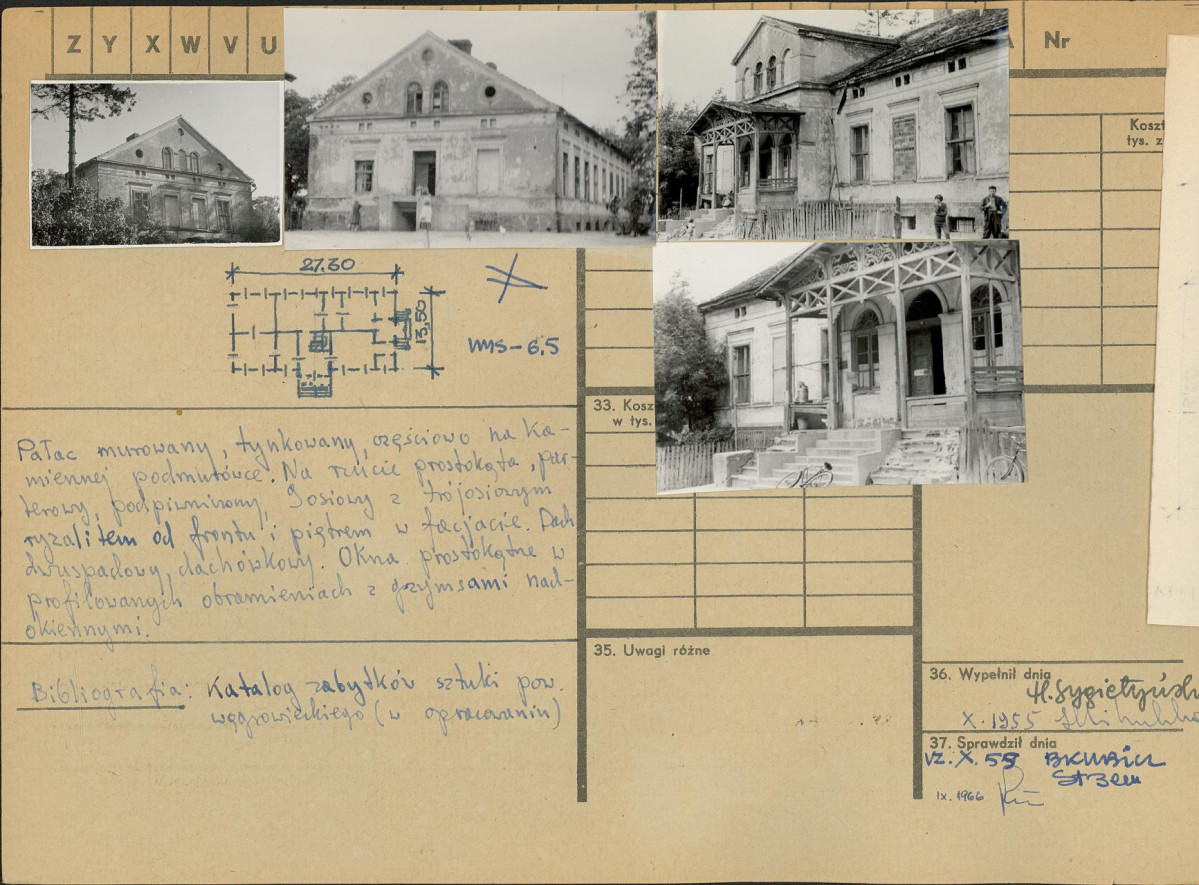 Z Y X W V U
Nr
Koszt
tys. z
27.30
13,50
33. Kosz
w tys.
Pałac murowany, tynkowany, częściowo na ka-
miennej podmurówce. Na rzucie prostokąta, par-
terowy, podpiwniczony, 9osiowy z trójosiowym
ryzalitem od frontu i piętrem w facjacie. Dach
dwuspadowy, dachówkowy. Okna prostokątne w
profilowanych obramieniach z gzymsami nad-
okiennymi.
Bibliografia: Katalog zabytków sztuki pow.
wągrowieckiego (w opracowaniu)
35. Uwagi różne
36. Wypełnił dnia
X.1955
37. Sprawdził dnia
X. 59
IX.1966